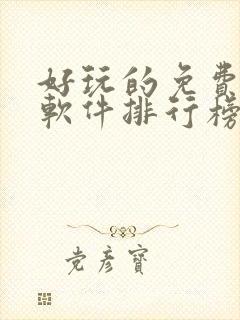 好玩的免費
軟件排行榜
党彥寶